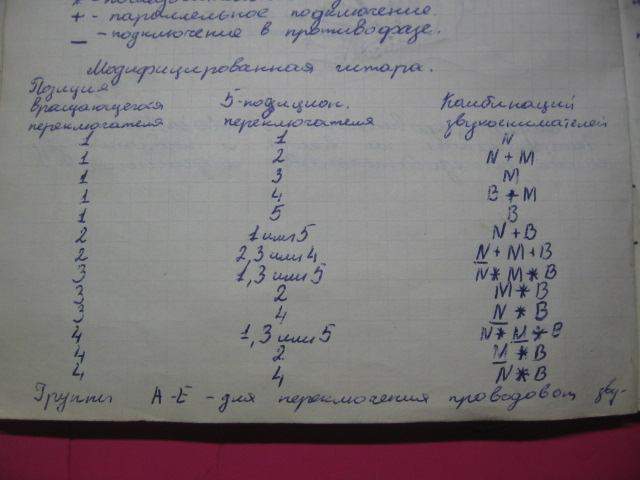 * - последов
+ - параллельное подключение.
_ - подключение в противофазе.
Модифицированная гитара.
Позиция
вращающегося 5-позицион. Комбинаций
переключателя переключателя звукоснимателей
1 1 N
1 2 N + M
1 3 M
1 4 B + M
1 5 B
2 1 или 5 N + B
2 2,3 или 4 N + M + B
3 1,3 или 5 N * M * B
3 2 M * B
3 4 N * B
4 1,3 или 5 N * M * B
4 2 M * B
4 4 N * B
Группы A-E - для переключения проводовот зву-